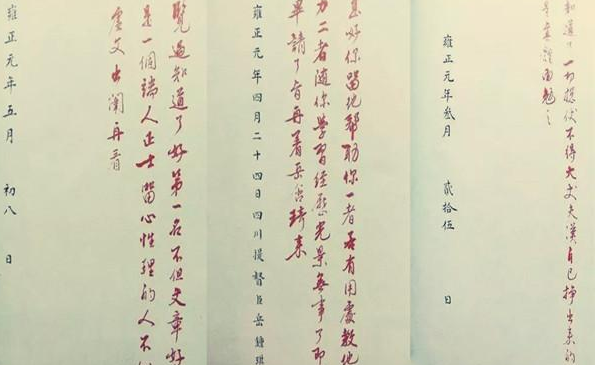 知道了一切總仗不得大丈夫漢自己掙出來的
是真體面勉之
雍正元年叁月 貳拾伍 日
好你留他幫助你一者若有用處教他
力二者隨你學習經歷光景無事了即
畢請了旨再著岳含琦來
雍正元年四月二十四日四川提督臣岳鍾琪
覽過知道了好第一名不但文章好
是一個端人正士留心性理的人不
虛文出闈再看
雍正元年五月 初八 日